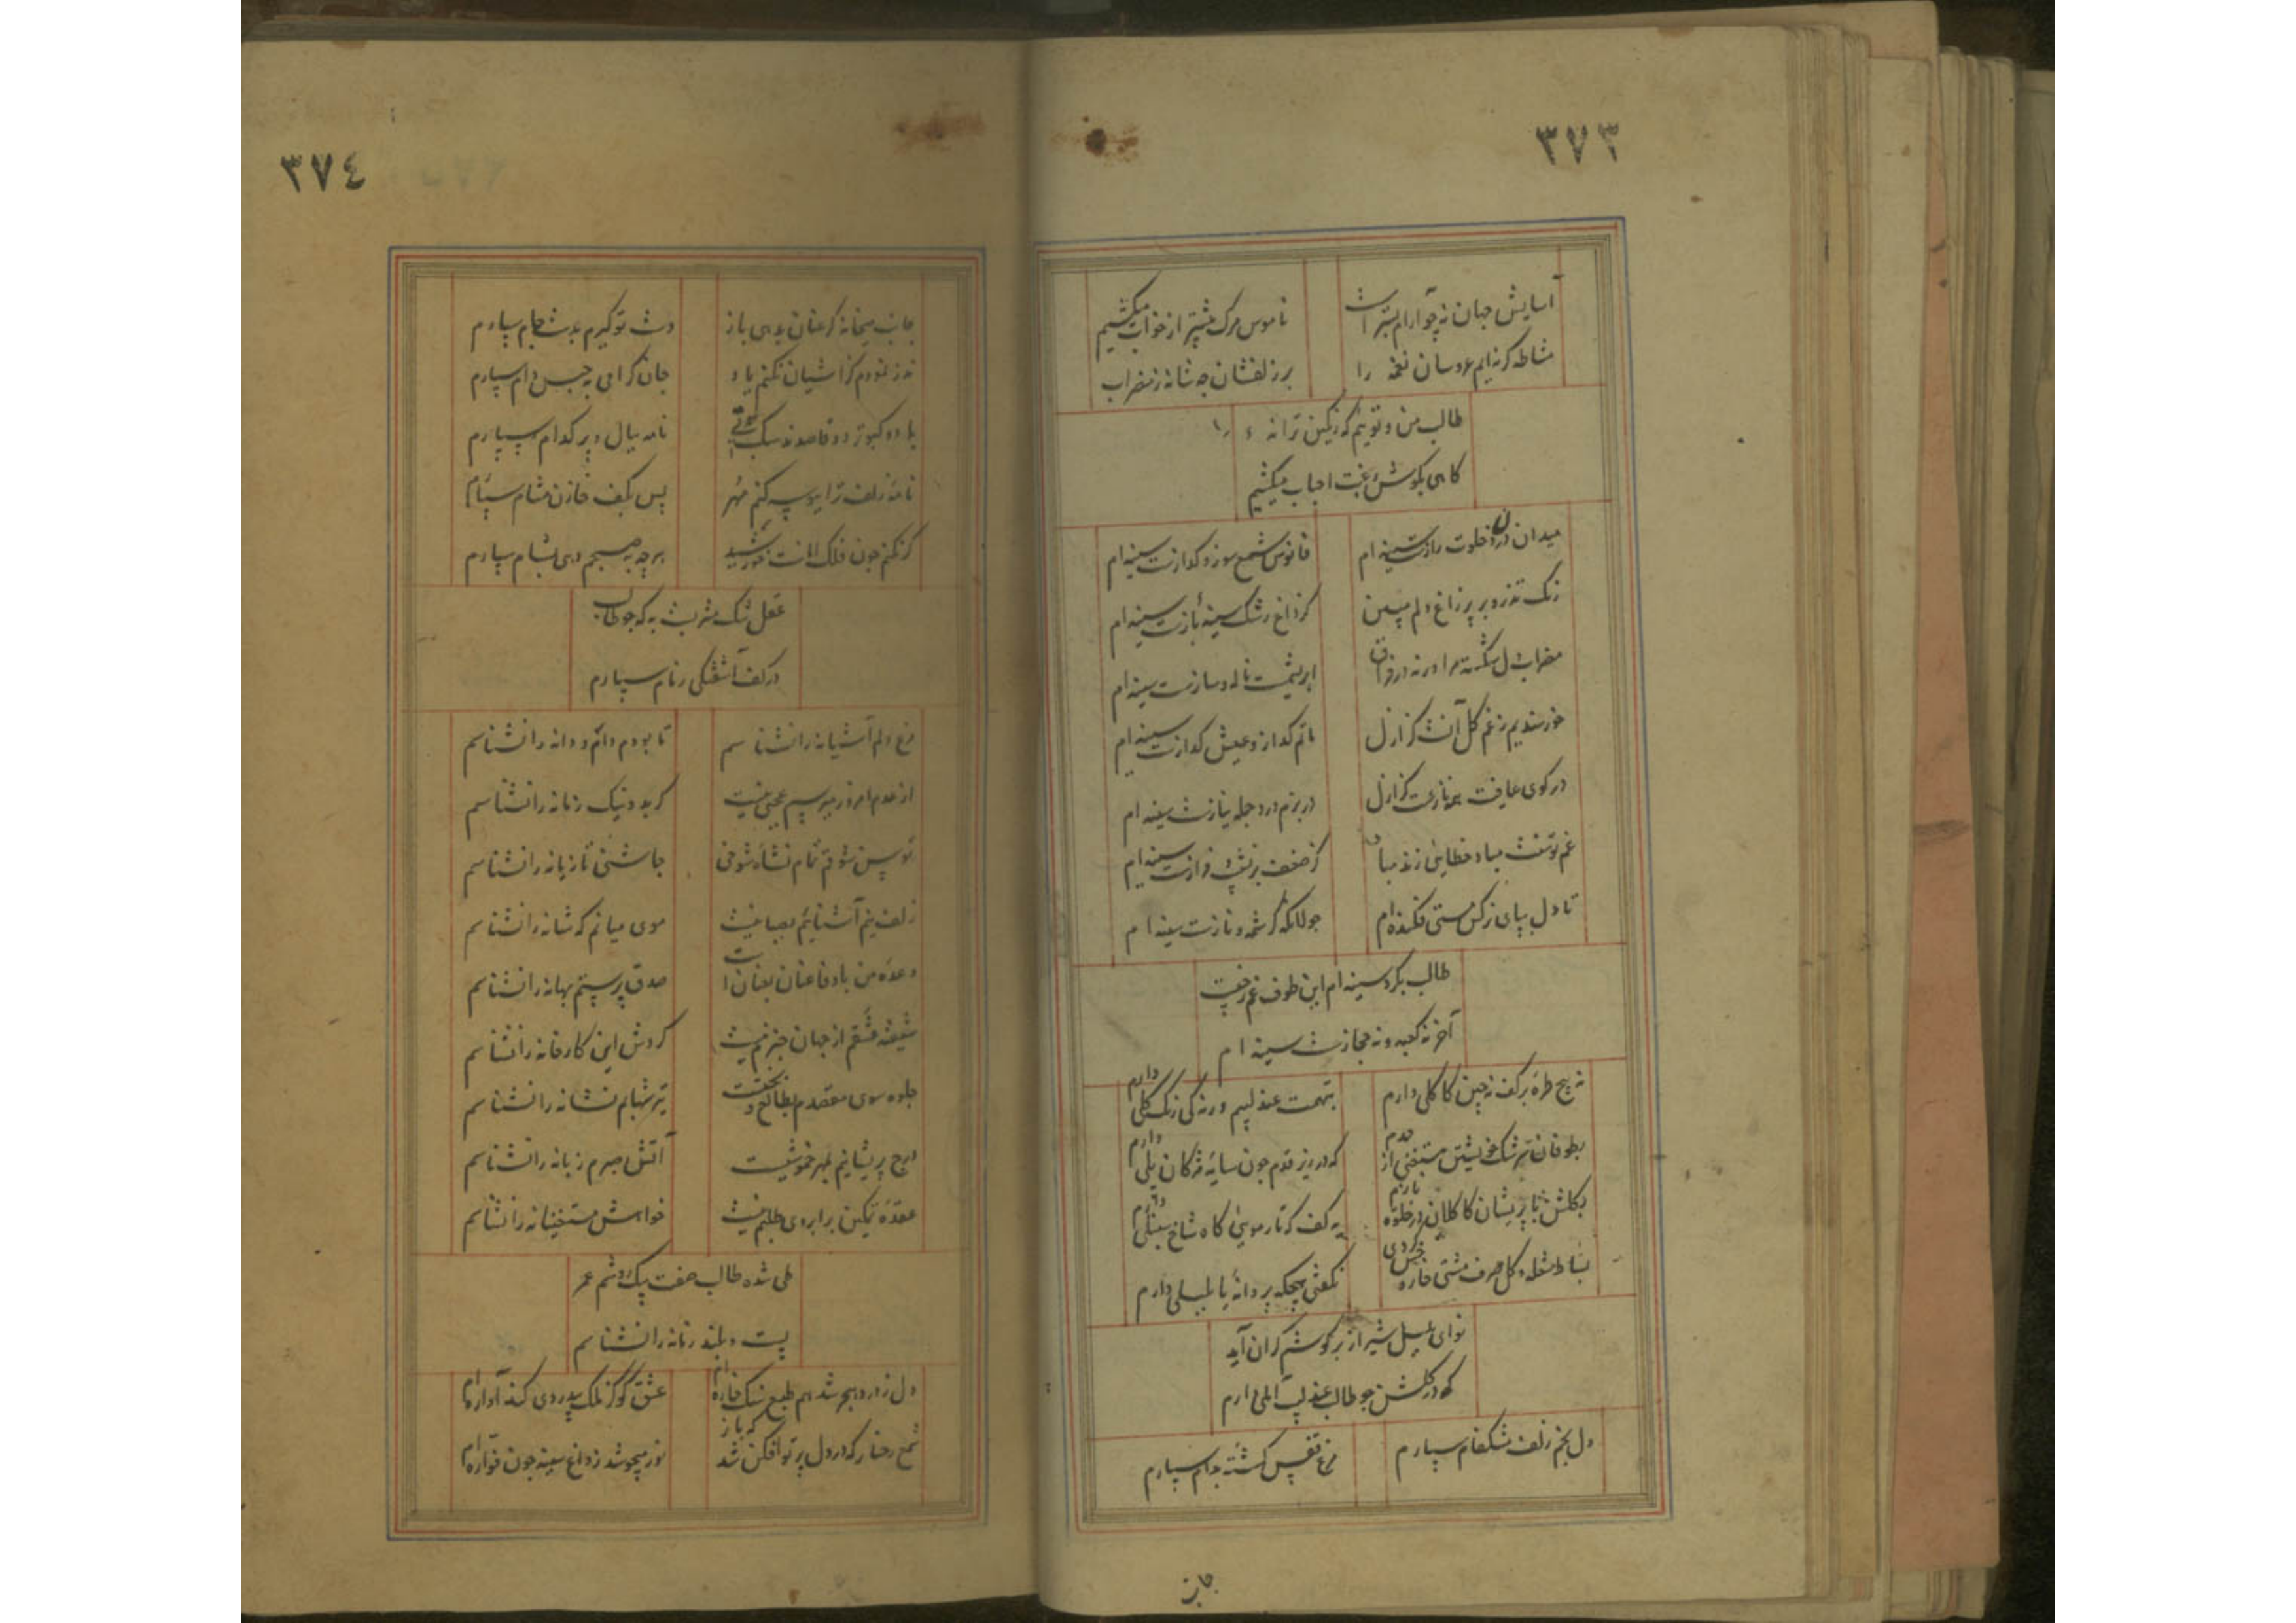 ٣٧٣
آسایش جهان نه چو آرام بستر است
ناموس مرک بیشتر از خواب میکشیم
مشاطه کرنه ایم عروسان نغمه را
بر زلفشان چه شانه ز مضراب
طالب من و توئیم که رنکین ترانه را
کاهی بکوش رغبت احباب میکشیم
میدان درد و خلوت رازست سینه ام
فانوس شمع سوز و کدازست سینه ام
رنک تذرو بر پر زاغ دلم مبین
کز داغ رشک سینه بازست سینه ام
مضراب دل شکسته مرا ورنه در فراق
ابریشمست ناله و سازست سینه ام
خورسندیم ز غم کل آنست کز ازل
ماتم کداز و عیش کدازست سینه ام
در کوی عافیت همه نازست کز ازل
در بزم درد جمله نیازست سینه ام
غم توتست مباد خطایی زند مباد
کز ضعف پر نشیب و فرازست سینه ام
تا دل بپای نرکس مستی فکنده ام
جولانکه کرشمه و نازست سینه ام
طالب بکرد سینه ام این طوف غم ز چیست
آخر نه کعبه و نه حجازست سینه ام
نه پیچ طره بر کف نه چین کاکلی دارم
بتهمت عندلیبم ورنه کی رنک کلی دارم
بطوفان سرشک خویشتن مستغنی از خدم
که در زیر قدم چون سایه مژکان پلی دارم
بکلشن با پریشان کاکلان در خلوه بازم
به کف که تار مویی کاه شاخ سنبلی دارم
بساط شعله و کل صرف مشتی خار و خس کردی
نکفتی هیچکه پروانه یا بلبلی دارم
نوای بلبل شیراز بر کوشم کران آید
که در کلشن چو طالب عندلیب آملی دارم
دل بخم زلف مشکفام سپارم
مرغ قفس کشته بدام سپارم
جانب
٣٧٤
جانب میخانه کر عنان بدهی باز
دست تو کیرم بدست جام سپارم
نذر نمودم کز آشیان نکنم یاد
جان کرامی به حبس دام سپارم
باد و کبوتر دو قاصدند سبک
نامه ببال و پر کدام سپارم
نامه زلف ترا ببوسه کنم مهر
پس بکف خازن مشام سپارم
کر نکنم چون فلک امانت خورشید
هر چه به صبحم دهی بشام سپارم
عقل تنک مشربست به که چو طالب
در کف آشفتکی زمام سپارم
مرغ دلم آشیانه را نشناسم
تا بودم دام و دانه را نشناسم
از عدم امروز میرسم عجبی نیست
کر بد و نیک زمانه را نشناسم
توسن شوقم تمام نشاه شوخی
چاشنی تازیانه را نشناسم
زلف نیم آشنائیم بصبا نیست
موی میانم که شانه را نشناسم
وعده من با وفا عنان بعنانست
صدق پرستم بهانه را نشناسم
شیفته عشقم از جهان خبرم نیست
کردش این کارخانه را نشناسم
جلوه سوی مقصدم بطالع و بختست
تیر شهابم نشانه را نشناسم
درج پریشانیم بمهر خموشیست
آتش صبرم زبانه را نشناسم
عقده تمکین بر ابروی طلبم نیست
خواهش مستغنیانه را نشناسم
طی شده طالب صفت پیک روشم عمر
پست و بلند زمانه را نشناسم
دل ز درد هجر شد هم طبع سنک خاره ام
عشق کو کز ملک بیدردی کند آواره ام
شمع رخسار که در دل پرتو افکن شد که باز
نور میجوشد ز داغ سینه چون فواره ام